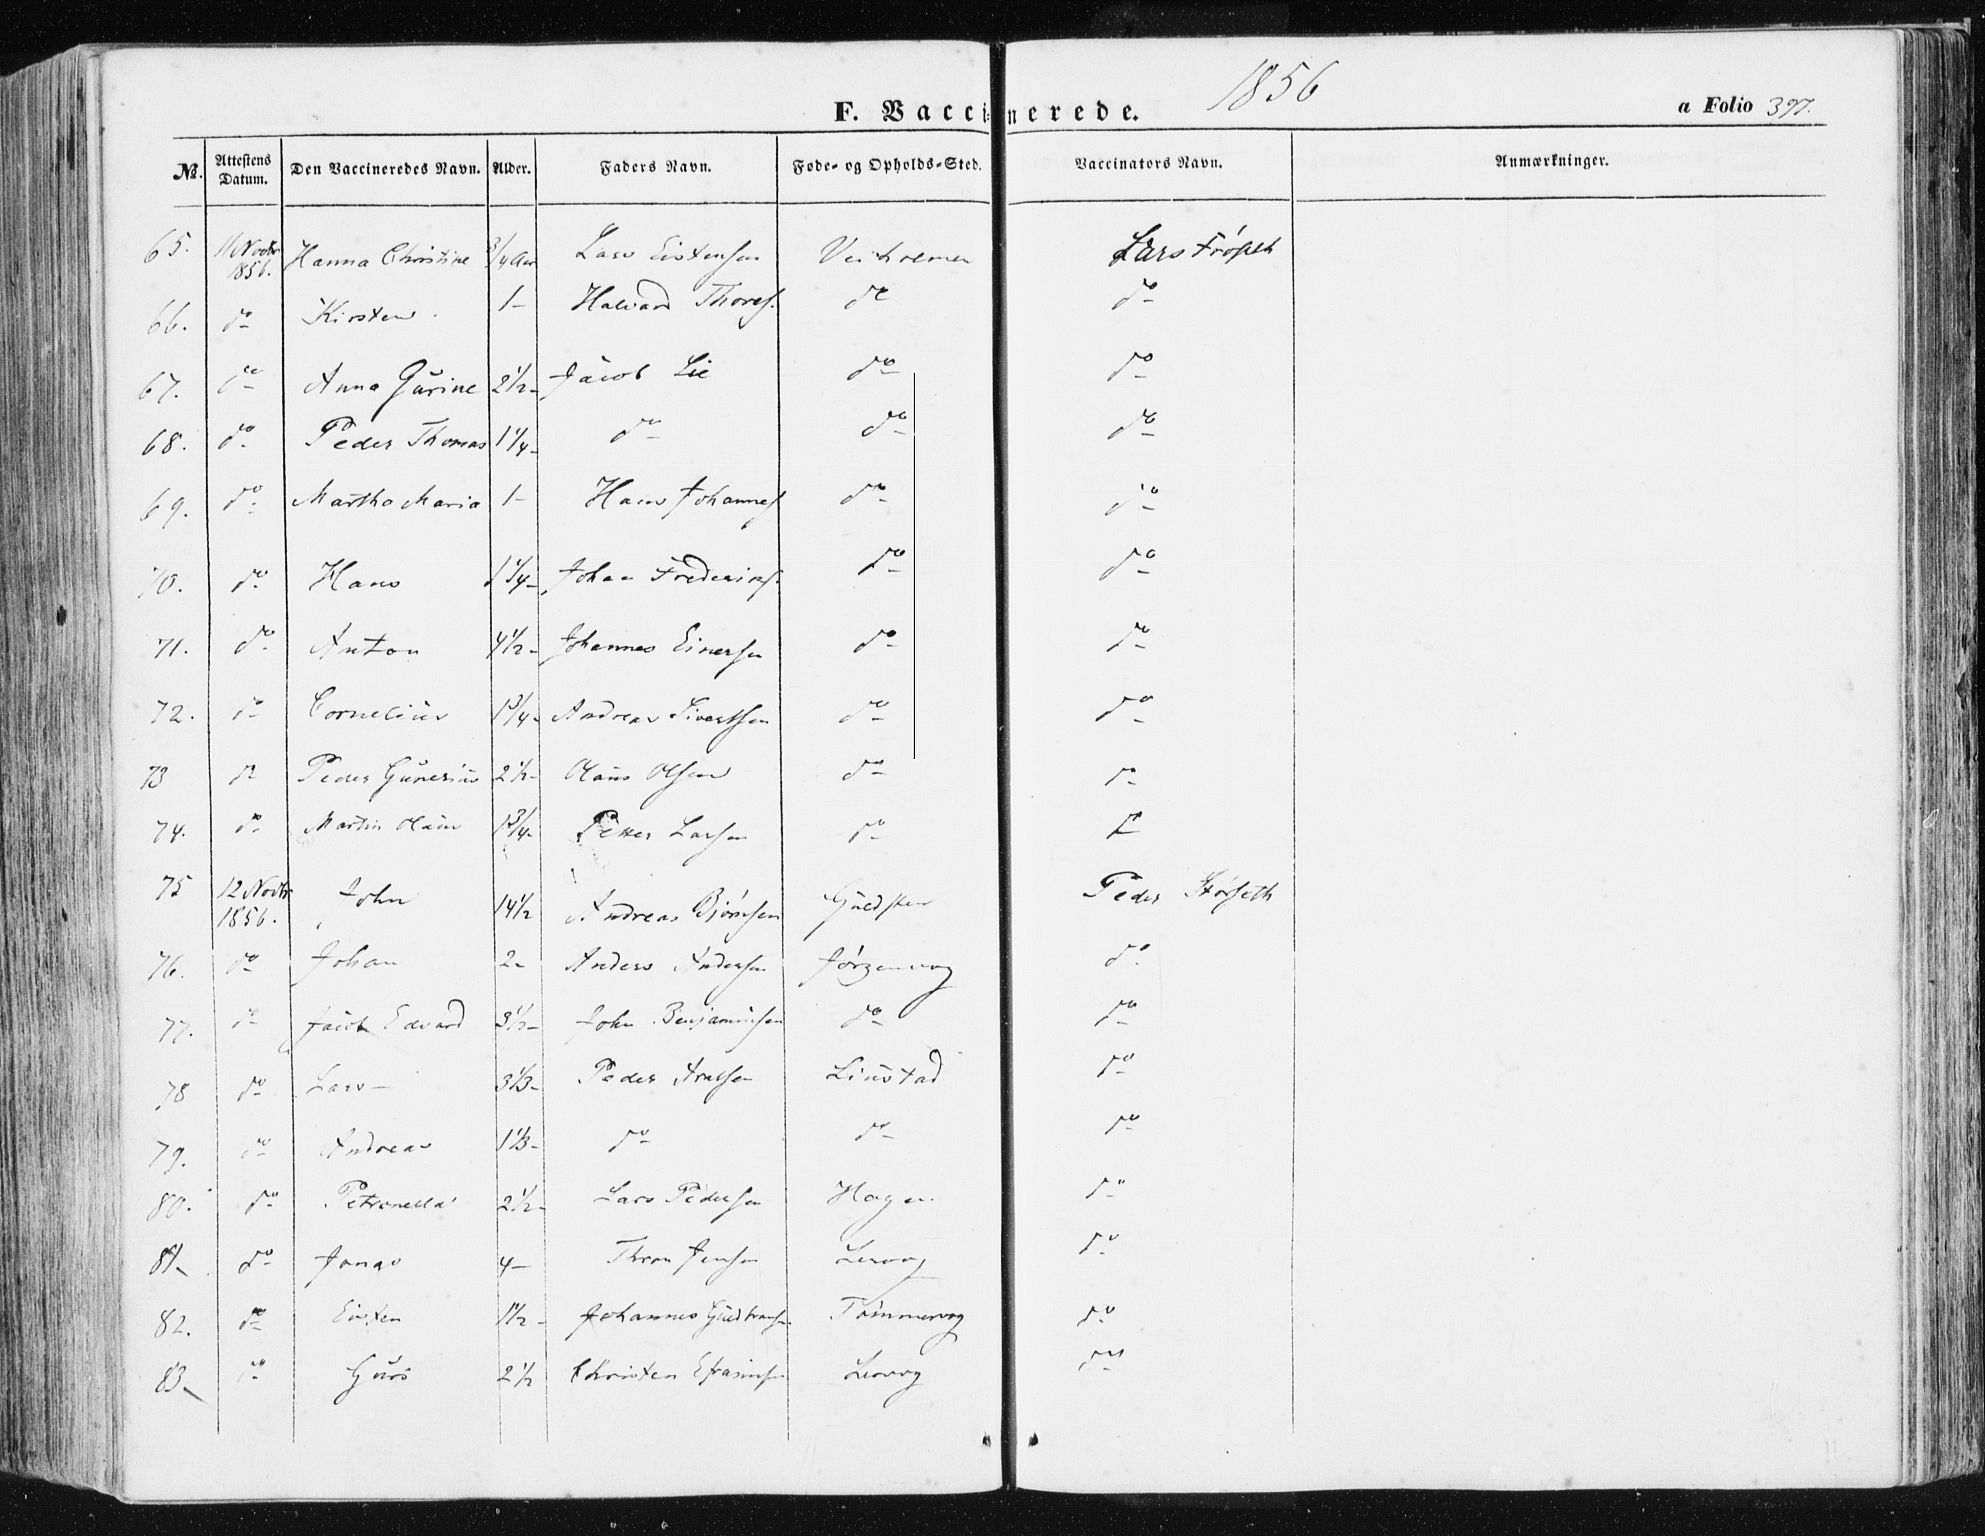 1856
F. Vaccinerede.
a Folio 397.
No. Attestens Datum. Den Vaccineredes Navn. Alder. Faders Navn. Føde- og Opholds-Sted. Vaccinators Navn. Anmærkninger.
65. 11 Novbr 1856. Hanna Christine 3/4 Aar Lars Eistensen Veiholmen Lars Frøseth
66. do Kirsten 1- Halvard Thores. do do
67. do Anna Gurine 2 1/2- Jacob Lie do do
68. do Peder Thomas 1 1/4- do do do
69. do Martha Maria 1- Hans Johannes. do do
70. do Hans 1 1/4- Johan Frederiks. do do
71. do Anton 4 1/2- Johannes Einersen do do
72. do Cornelius 1 3/4- Andreas Sivertsen do do
73 do Peder Gunerius 2 1/2- Olaus Olsen do do
74. do Martin Olaus 1 3/4- Petter Larsen do do
75 12 Novbr 1856. John 14 1/2 Andreas Bjørnsen Peder Størseth
76. do Johan 2- Anders Andersen Jørgenvog do
77. do Jacob Edvard 3 1/2- John Benjaminsen do do
78 do Lars- 3 1/3- Peder Arntsen Linstad do
79. do Andreas 1 1/3- do do do
80. do Petronella 2 1/2- Lars Pedersen Hagen do
81- do Jonas 4- Thron Jensen Lervog do
82. do Eisten 1 1/2- Johannes Guldbrands. Tømmervog do
83- do Guro 2 1/2 Christen Efraims. Lervog do